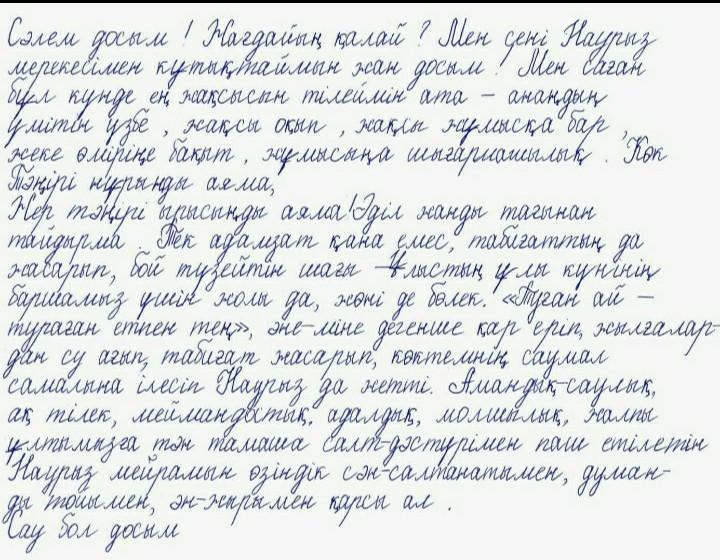 Сәлем досым ! Жағдайың қалай ? Мен сені Наурыз
мерекесімен құтықтаймын жан досым ! Мен саған
бұл күнде ең жақсысын тілеймін ата – анаңдың
үмітін үзбе , жақсы оқып , жақсы жұмысқа бар ,
жеке өміріңе бақыт , жұмысыңа шығармашылық . Көк
Тәңірі нұрыңды аяма,
Жер тәңірі ырысыңды аяма! Әділ ханды тағынан
тайдырма . Тек адамзат қана емес, табиғаттың да
жасарып, бой түзейтін шағы – Ұлыстың ұлы күнінің
баршамыз үшін жолы да, жөні де бөлек. «Туған ай –
тураған етпен тең», әне-міне дегенше қар еріп, жылғалар-
дан су ағып, табиғат жасарып, көктемнің саумал
самалына ілесіп Наурыз да жетті. Амандық-саулық,
ақ тілек, меймандостық, адалдық, молшылық, жалпы
ұлтымызға тән тамаша салт-дәстүрімен паш етілетін
Наурыз мейрамын өзіндік сән-салтанатымен, думан-
ды тойымен, ән-жырымен қарсы ал .
Сау бол досым